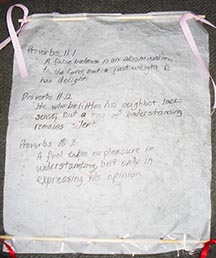 Proverbs 11:1
A false balance is an abomination
to the Lord, but a just weight is
his delight.
Proverbs 11:12
He who belittles his neighbor lacks
sense, but a man of understanding
remains silent
Proverbs 18:2
A fool takes no pleasure in
understanding, but only in
expressing his opinion